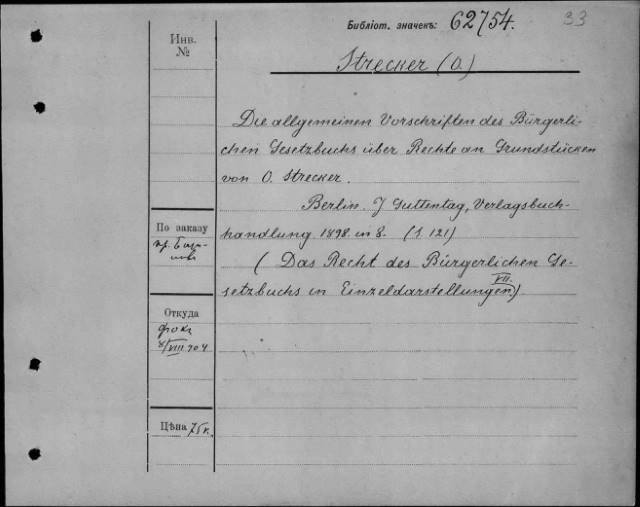 Библіот. значекъ: 62754. 33
Инв.
№
Strecker (O.)
Die allgemeinen Vorschriften des Bürgerli-
chen Gesetzbuchs über Rechte an Grundstücken
von O. Strecker.
Berlin. J Guttentag, Verlagsbuch-
handlung 1898. in 8. (1 121)
(Das Recht des Bürgerlichen Ge-
setzbuchs in Einzeldarstellungen) VII.
По заказу
пр.
Откуда
8/VIII 904
Цѣна 75 к.